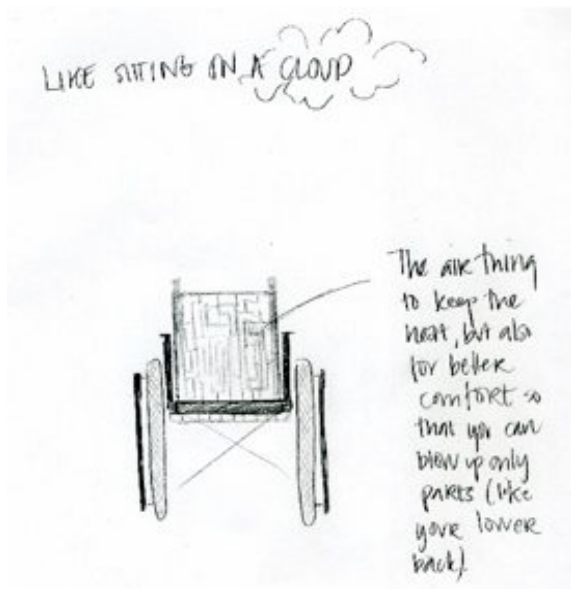 LIKE SITTING ON A CLOUD
The air thing
to keep the
heat, but also
for better
comfort so
that you can
blow up only
parts (like
your lower
back)